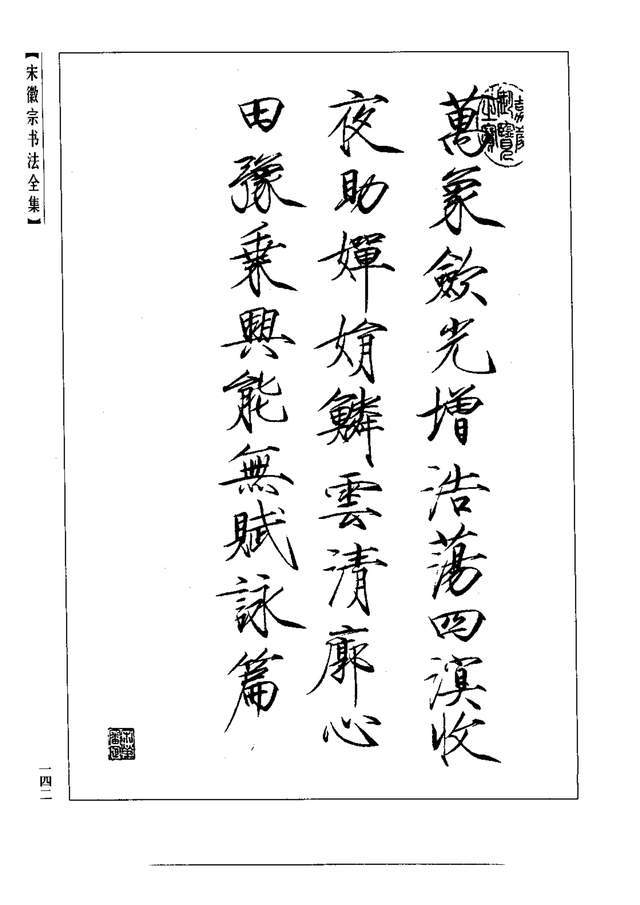 萬象斂光增浩蕩四溟收
夜助嬋娟鱗雲清廓心
田豫乗興能無賦詠篇
【宋徽宗书法全集】
一四二